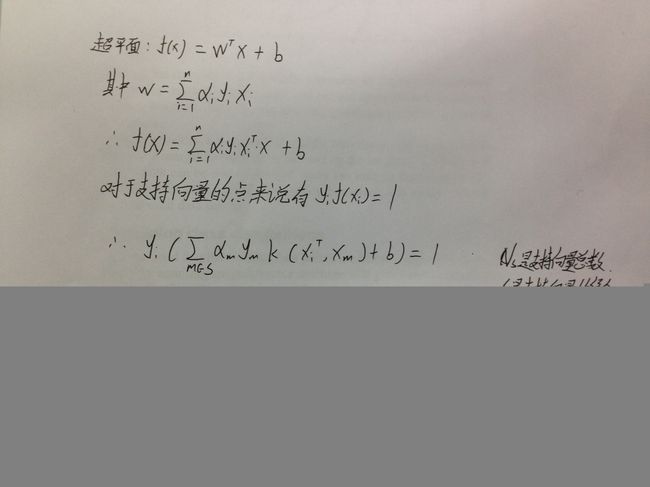 超平面: f(x) = wᵀx + b
其中 w = ∑ᵢ₌₁ⁿ αᵢyᵢxᵢ
∴ f(x) = ∑ᵢ₌₁ⁿ αᵢyᵢxᵢᵀ·x + b
对于支持向量的点来说有 yᵢf(xᵢ) = 1
∴ yᵢ(∑_{m∈S} αₘyₘk(xᵢᵀ, xₘ) + b) = 1
Nₛ是支持向量总数